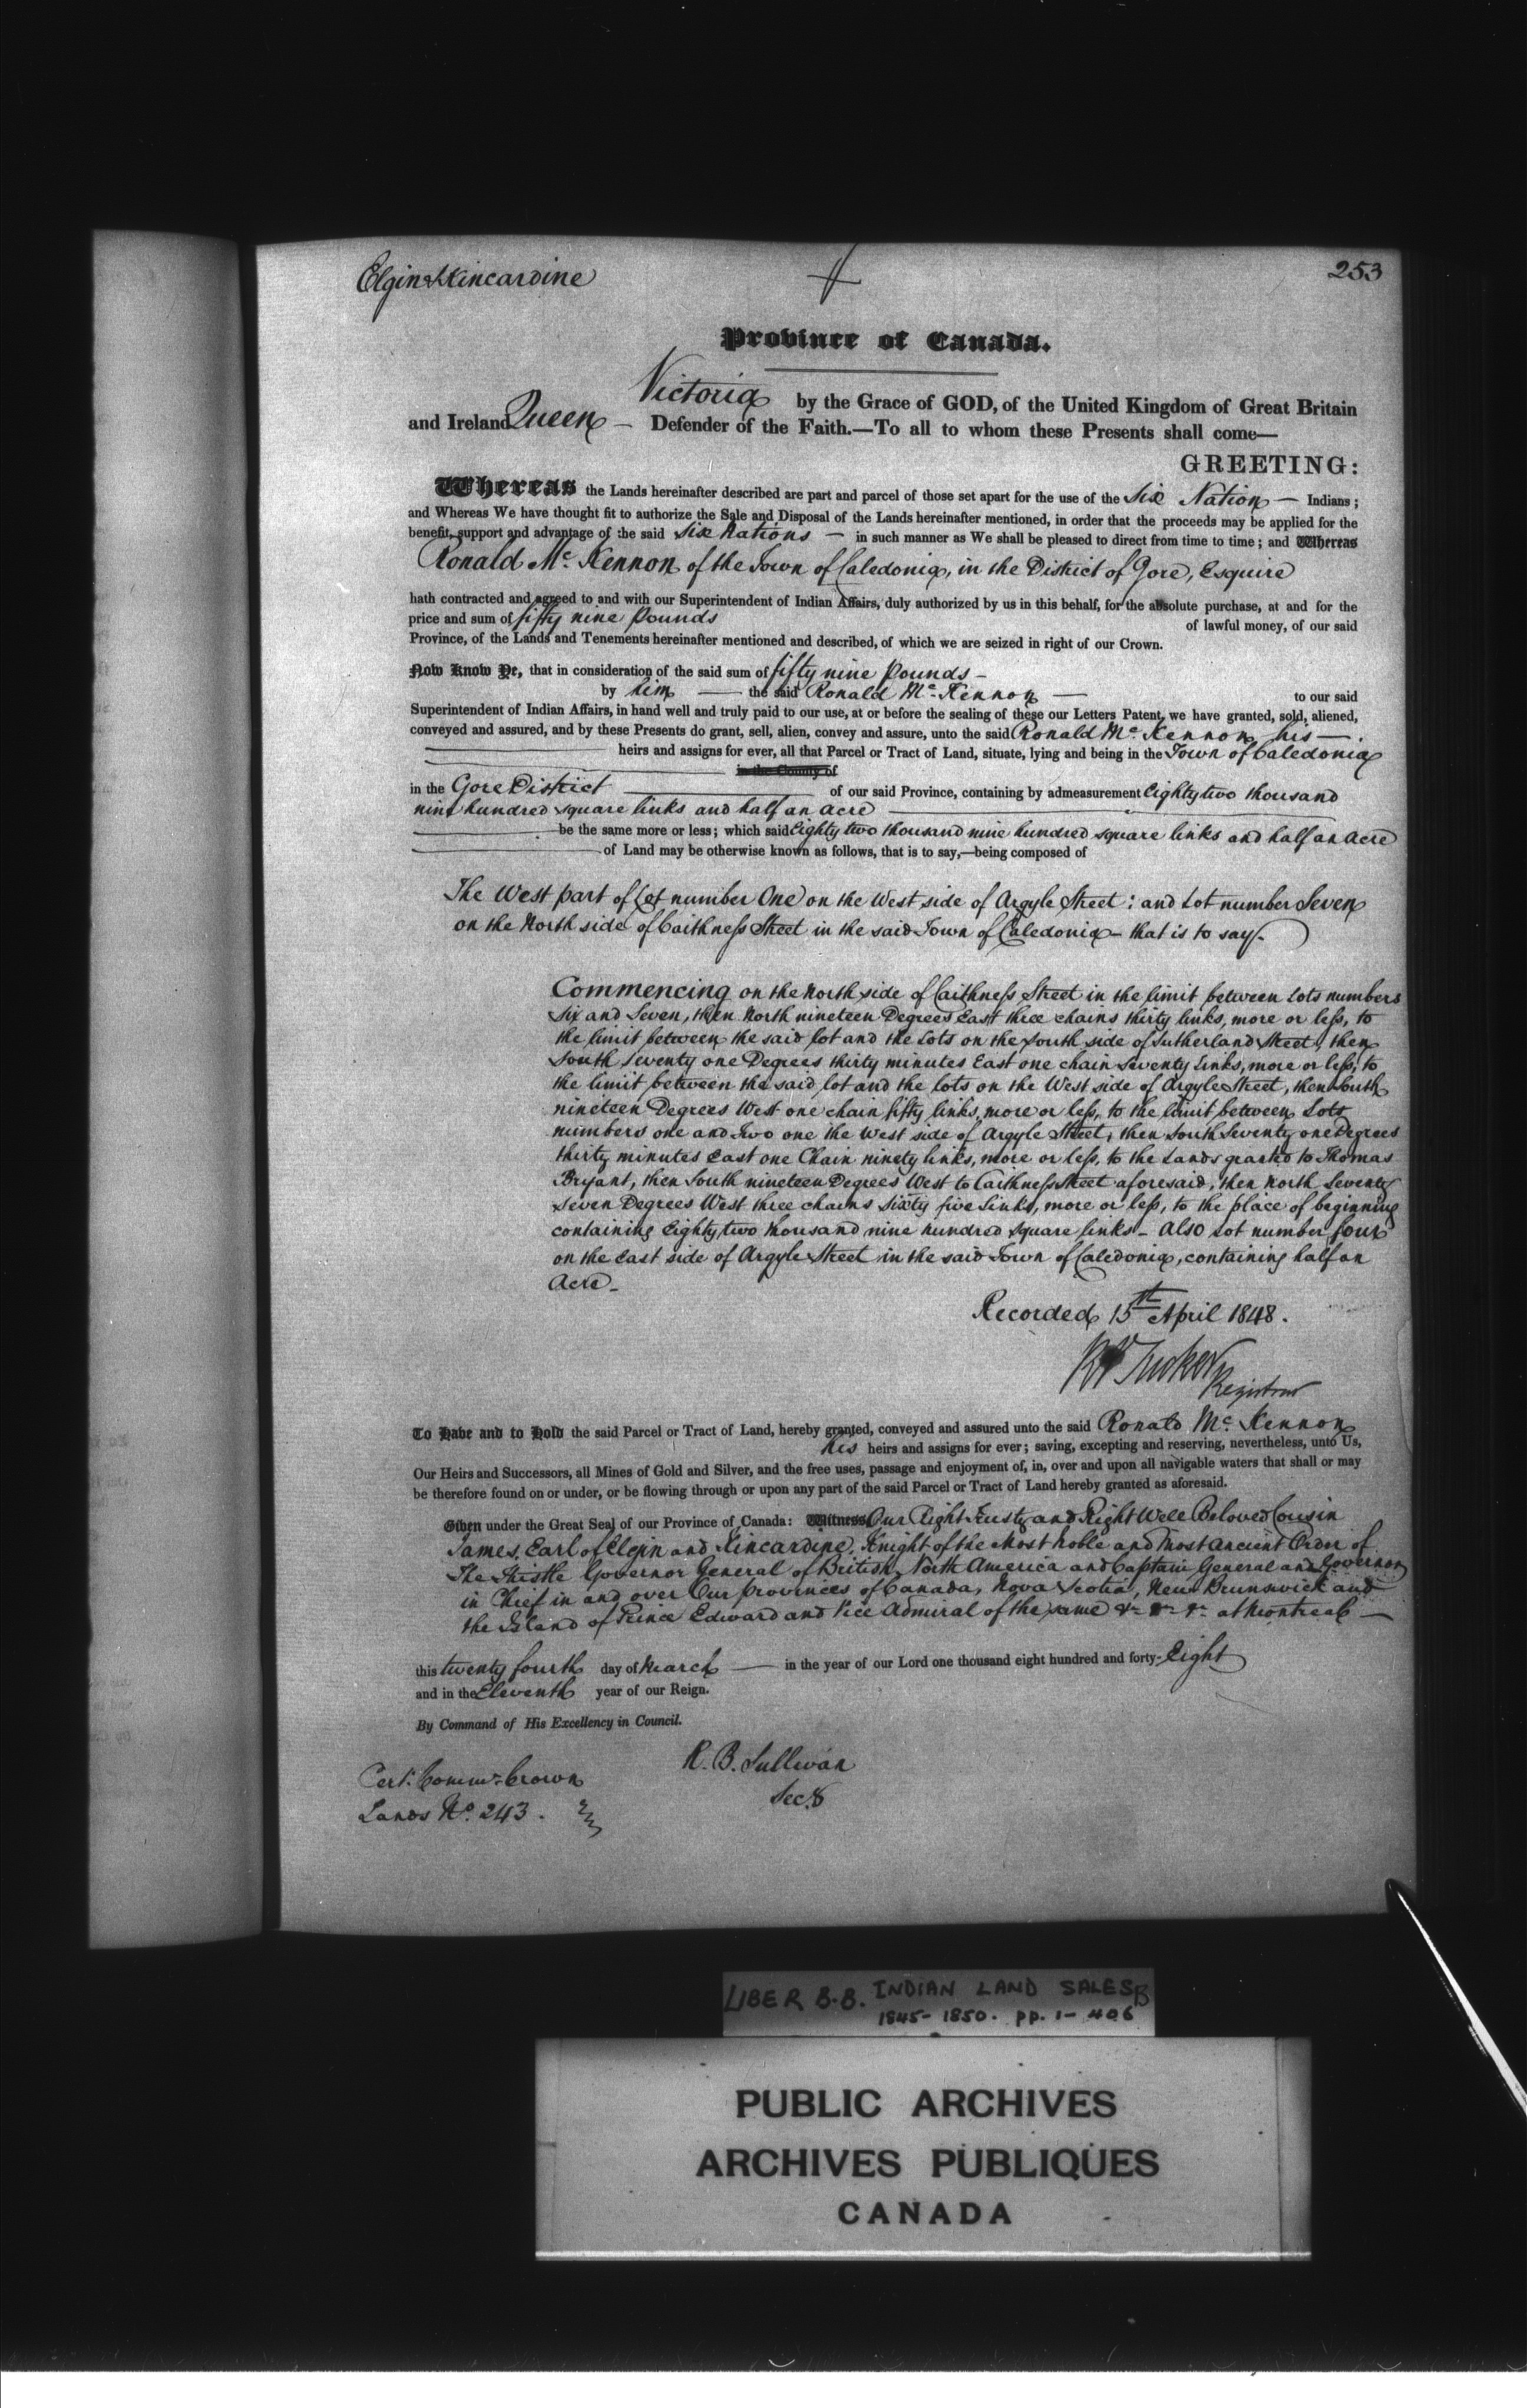 Elgin & Kincardine
253
Province of Canada.
Victoria by the Grace of GOD, of the United Kingdom of Great Britain
and Ireland Queen – Defender of the Faith.—To all to whom these Presents shall come—
GREETING:
Whereas the Lands hereinafter described are part and parcel of those set apart for the use of the Six Nation — Indians;
and Whereas We have thought fit to authorize the Sale and Disposal of the Lands hereinafter mentioned, in order that the proceeds may be applied for the
benefit, support and advantage of the said Six Nations — in such manner as We shall be pleased to direct from time to time; and Whereas
Ronald Mc. Kennon of the Town of Caledonia, in the District of Gore, Esquire
hath contracted and agreed to and with our Superintendent of Indian Affairs, duly authorized by us in this behalf, for the absolute purchase, at and for the
price and sum of fifty nine Pounds of lawful money, of our said
Province, of the Lands and Tenements hereinafter mentioned and described, of which we are seized in right of our Crown.
Now Know Ye, that in consideration of the said sum of fifty nine Pounds –
by him — the said Ronald Mc. Kennon — to our said
Superintendent of Indian Affairs, in hand well and truly paid to our use, at or before the sealing of these our Letters Patent, we have granted, sold, aliened,
conveyed and assured, and by these Presents do grant, sell, alien, convey and assure, unto the said Ronald Mc. Kennon his —
heirs and assigns for ever, all that Parcel or Tract of Land, situate, lying and being in the Town of Caledonia
in the County of
in the Gore District — of our said Province, containing by admeasurement Eighty two thousand
nine hundred square links and half an acre
be the same more or less; which said Eighty two thousand nine hundred square links and half an acre
of Land may be otherwise known as follows, that is to say,—being composed of
The West part of Lot number One on the West side of Argyle Street: and Lot number Seven
on the North side of Caithness Street in the said Town of Caledonia – that is to say –
Commencing on the North side of Caithness Street in the limit between Lots numbers
Six and Seven, then North nineteen Degrees East three chains thirty links, more or less, to
the limit between the said lot and the Lots on the South side of Sutherland Street, then
South Seventy one Degrees thirty minutes East one chain Seventy links, more or less, to
the limit between the said lot and the lots on the West side of Argyle Street, then South
nineteen Degrees West one chain fifty links, more or less, to the limit between Lots
numbers one and Two one the West side of Argyle Street, then South Seventy one Degrees
thirty minutes East one Chain ninety links, more or less, to the Lands granted to Thomas
Bryant, then South nineteen Degrees West to Caithness Street aforesaid, then North Seventy
Seven Degrees West three chains sixty five Links, more or less, to the place of beginning
containing Eighty two thousand nine hundred square links – Also Lot number four
on the East side of Argyle Street in the said Town of Caledonia, containing half an
Acre –
Recorded 15th April 1848.
Tucker
Registrar
To Have and to Hold the said Parcel or Tract of Land, hereby granted, conveyed and assured unto the said Ronald Mc. Kennon
his heirs and assigns for ever; saving, excepting and reserving, nevertheless, unto Us,
Our Heirs and Successors, all Mines of Gold and Silver, and the free uses, passage and enjoyment of, in, over and upon all navigable waters that shall or may
be therefore found on or under, or be flowing through or upon any part of the said Parcel or Tract of Land hereby granted as aforesaid.
Given under the Great Seal of our Province of Canada: Witness Our Right Trusty and Right Well Beloved Cousin
James, Earl of Elgin and Kincardine, Knight of the Most Noble and Most Ancient Order of
The Thistle Governor General of British North America and Captain General and Governor
in Chief in and over Our Provinces of Canada, Nova Scotia, New Brunswick and
the Island of Prince Edward and Vice Admiral of the same &c &c &c at Montreal —
this twenty fourth day of March — in the year of our Lord one thousand eight hundred and forty-Eight
and in the Eleventh year of our Reign.
By Command of His Excellency in Council.
R. B. Sullivan
Secy
Cert. Commr. Crown
Lands No. 243.
LIBER B.B. INDIAN LAND SALES B
1845-1850. pp. 1-406
PUBLIC ARCHIVES
ARCHIVES PUBLIQUES
CANADA